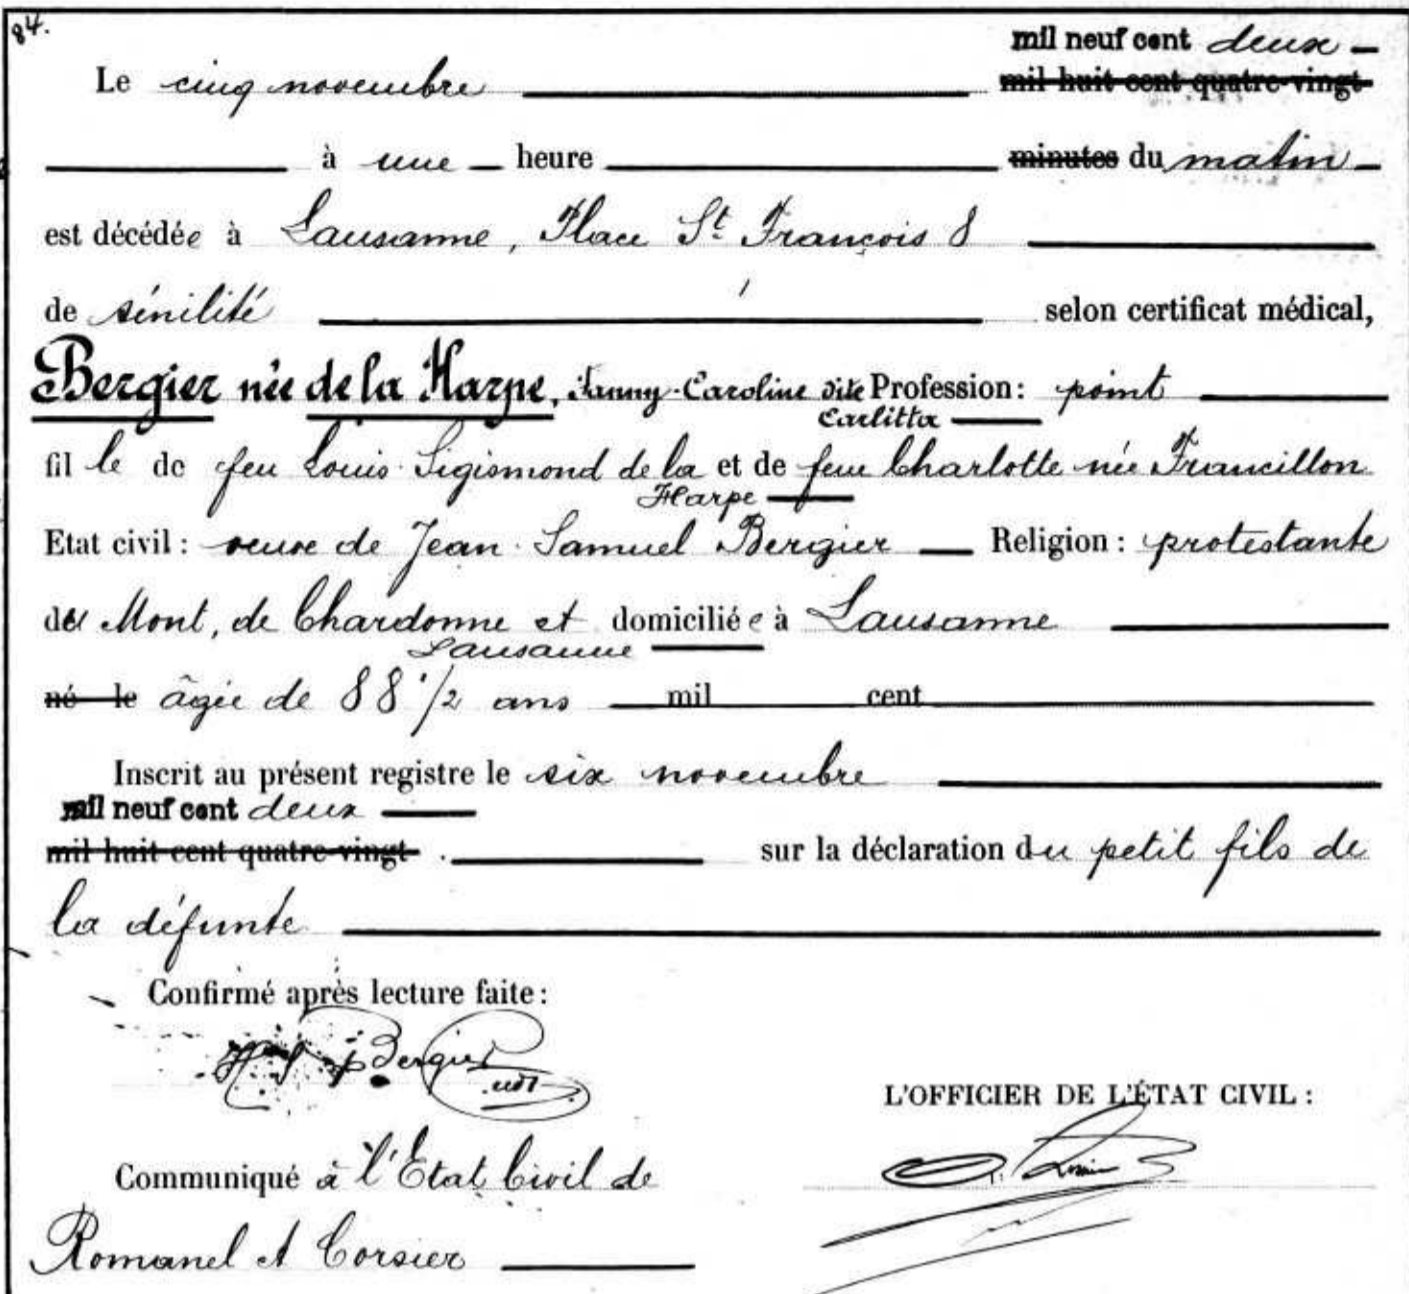 84.
mil neuf cent deux
Le cinq novembre mil huit cent quatre-vingt
à une heure minutes du matin
est décédée à Lausanne, Place St François 8
de sénilité selon certificat médical,
Bergier née de la Harpe, Fanny-Caroline dite Profession: point
Carlitta
fil le de feu Louis Sigismond de la et de feue Charlotte née Francillon
Harpe
Etat civil: veuve de Jean-Samuel Bergier Religion: protestante
du Mont, de Chardonne et domiciliée à Lausanne
Lausanne
né le âgée de 88 1/2 ans mil cent
Inscrit au présent registre le six novembre
mil neuf cent deux
mil huit cent quatre-vingt sur la déclaration du petit fils de
la défunte
Confirmé après lecture faite:
Bergier
L'OFFICIER DE L'ÉTAT CIVIL:
Communiqué à l'Etat Civil de
Romanel et Corsier